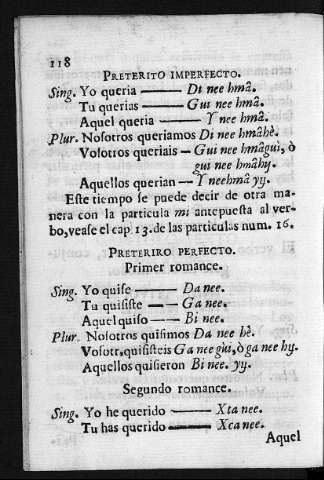 118
PRETERITO IMPERFECTO.
Sing. Yo queria —— Di nee hmâ.
Tu querias —— Gui nee hmâ.
Aquel queria —— Y nee hmâ.
Plur. Nosotros queriamos Di nee hmâhè.
Vosotros queriais – Gui nee hmâgui, ò
gui nee hmâhy.
Aquellos querian — Y neehmâ yy.
Este tiempo se puede decir de otra ma-
nera con la particula mi antepuesta al ver-
bo, vease el cap 13. de las particulas num. 16.
PRETERIRO PERFECTO.
Primer romance.
Sing. Yo quise —— Da nee.
Tu quisiste —— Ga nee.
Aquel quiso —— Bi nee.
Plur. Nosotros quisimos Da nee hè.
Vosotr. quisisteis Ga nee gui, ò ga nee hy.
Aquellos quisieron Bi nee. yy.
Segundo romance.
Sing. Yo he querido —— Xta nee.
Tu has querido —— Xca nee.
Aquel